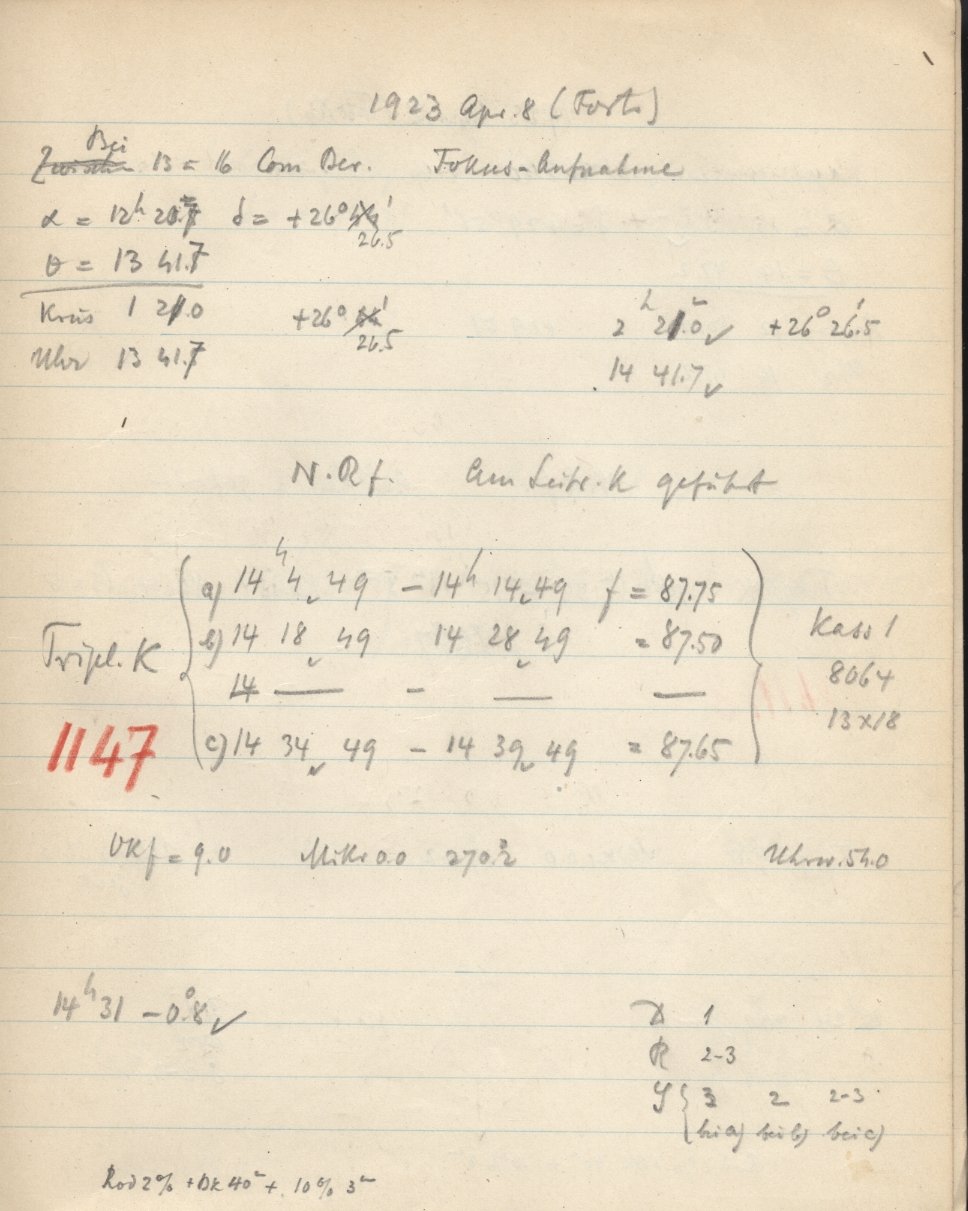 1923 Apr. 8 (Forts)
Bei
Zwischen 13 = 16 Com Ber. Fokus-Aufnahme
α = 12h 20.7 δ = +26° 44'
26.5
θ = 13 41.7
Kreis 1 21.0 +26° 44' 2h 21.0m ✓ +26° 26.5'
26.5
Uhr 13 41.7 14 41.7 ✓
N. R f. Am Leitr. K geführt
a) 14h 4 49 – 14h 14 49 f = 87.75
b) 14 18 49 14 28 49 = 87.50 Kass 1
Tripl. K 8064
14 — – — —
13x18
1147 c) 14 34 49 – 14 39 49 = 87.65
OKf = 9.0 Mikr 0.0 270.°2 Uhrw. 54.0
14h 31 – 0.°8 ✓
D 1
R 2-3
S { 3 2 2-3
bei a) bei b) bei c)
Rod 2% + Dk 40m + 10% 3m